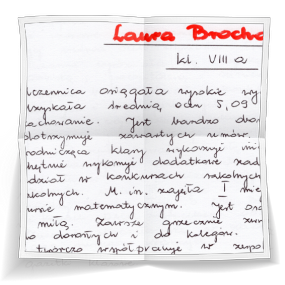 Laura Brocho
kl. VIII a
uczennica osiągała wysokie wy
uzyskała średnią ocen 5,09
zachowanie. Jest bardzo do
dotrzymuje zawartych umów.
wodnicząca klasy wykazuje
chętnie wykonuje dodatkowe zad
udział w konkursach szkolnych
szkolnych. M. in. zajęła I mie
matematycznym. Jest os
miłą. Zawsze grzecznie
do dorosłych i do kolegów.
twórczo współpracuje w zespo